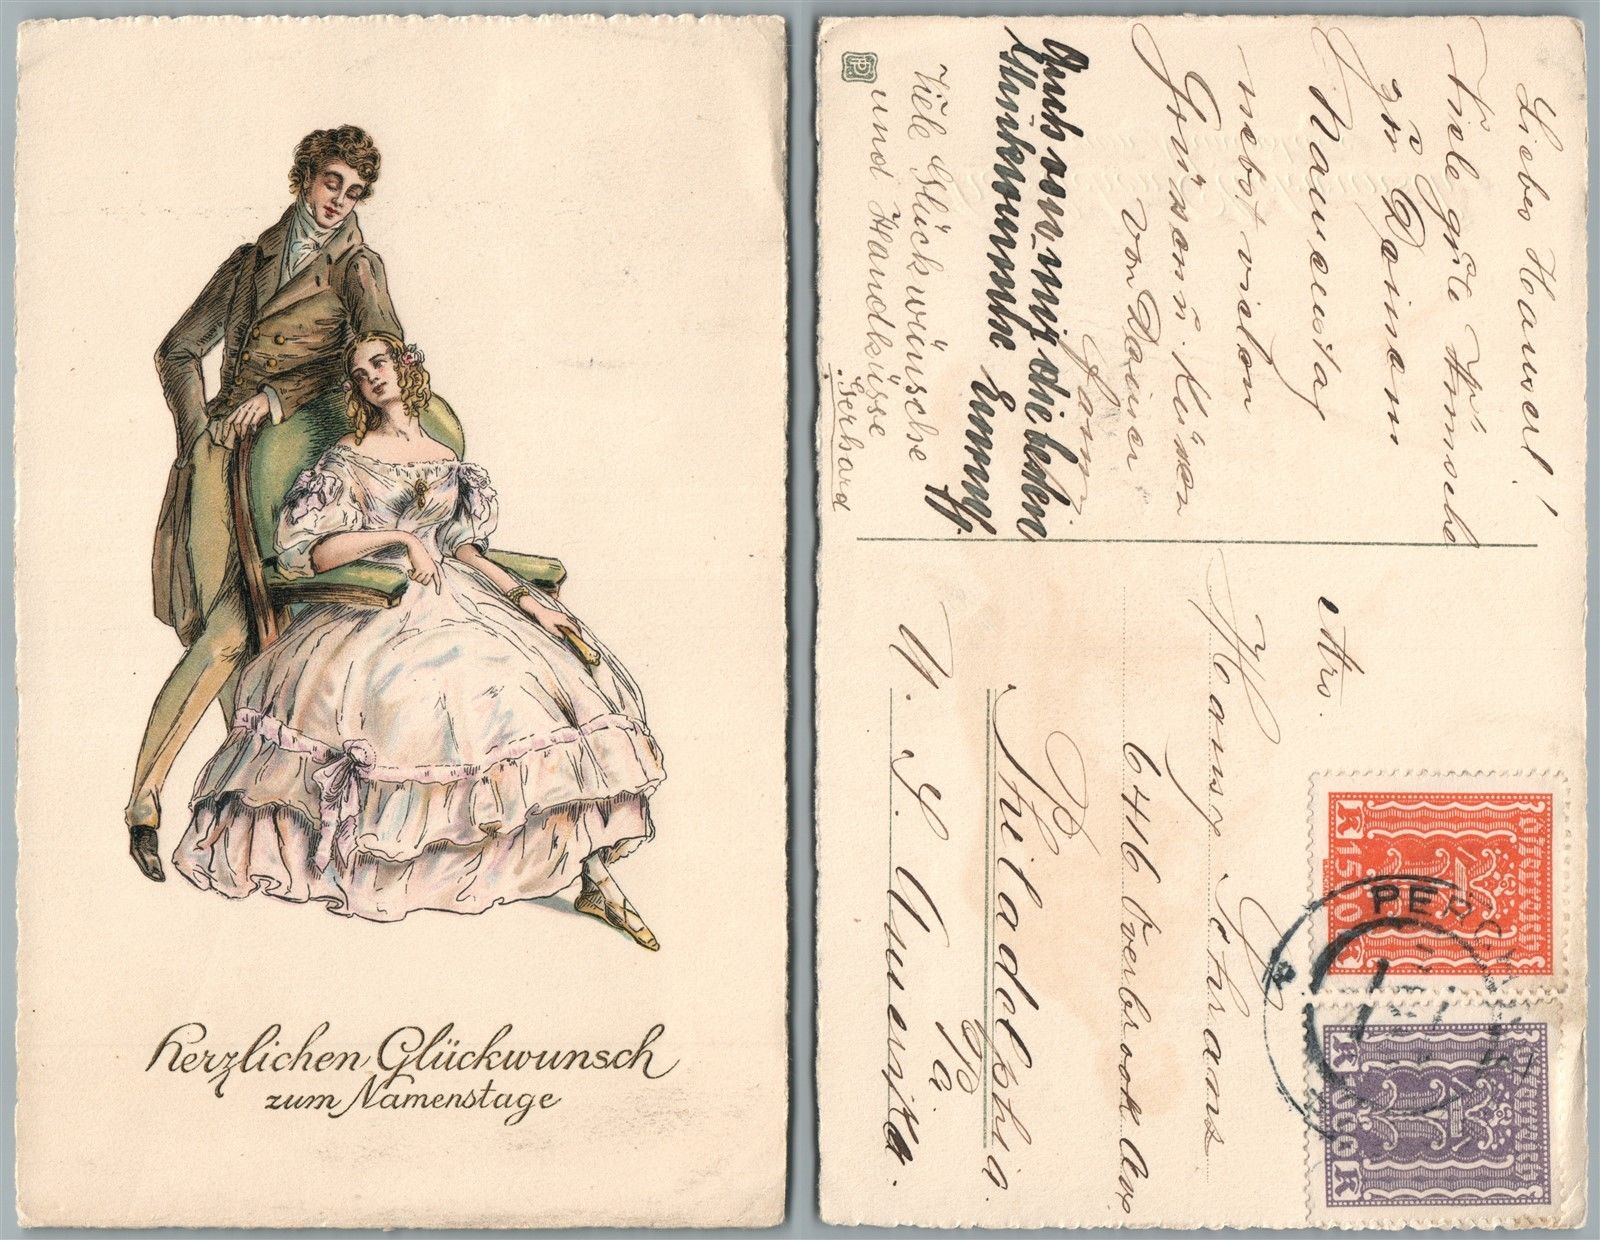 Herzlichen Glückwunsch
zum Namenstage
Liebes Hanserl!
Viele gute Wünsche
zu Deinem
Namenstag
nebst vielen
Grüssen u. Küssen
von Deiner
Fanni
Auch von mir die besten
Glückwünsche Emmy.
Viele Glückwünsche
und Handküsse
Gerhard
Mrs.
Hansy Schrams
6416 Overbrook Av.
Philadelphia.
Pa
U. S. America.
PERCH
1500
ÖSTERREICH
K 1000 K
ÖSTERREICH